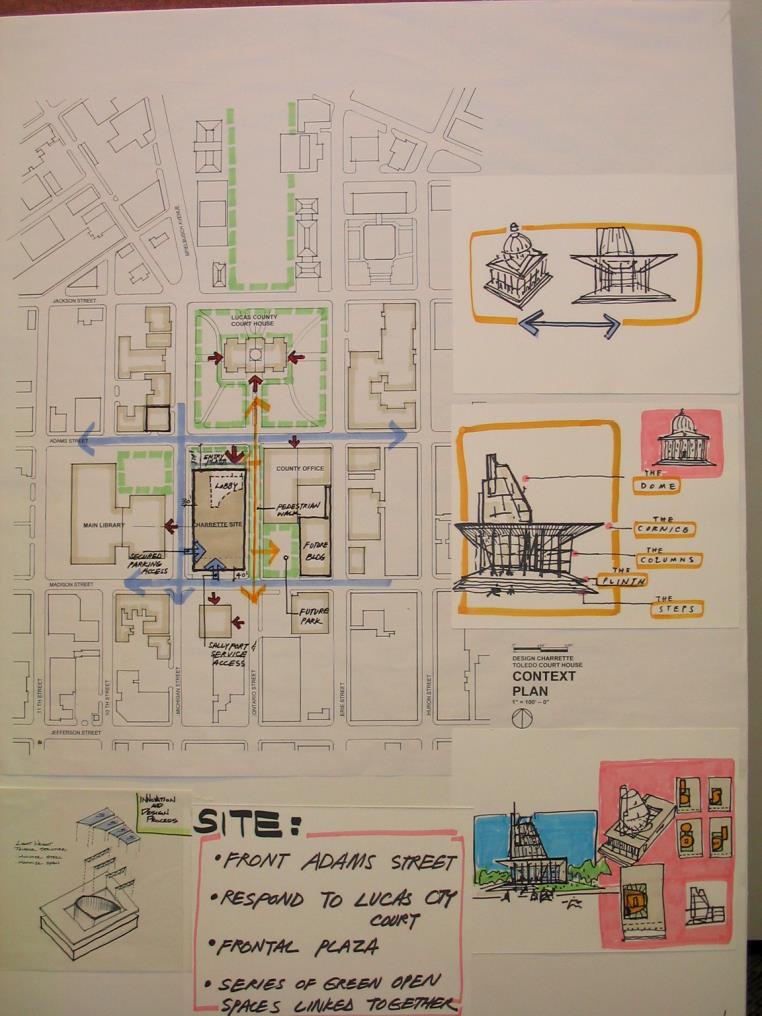 SPIELBUSCH AVENUE
JACKSON STREET
LUCAS COUNTY
COURT HOUSE
ADAMS STREET
ENTRY
LOBBY
COUNTY OFFICE
PEDESTRIAN
WALK
MAIN LIBRARY
CHARRETTE SITE
FUTURE
BLDG
SECURED
PARKING
ACCESS
40'
MADISON STREET
FUTURE
PARK
SALLYPORT &
SERVICE
ACCESS
11TH STREET
10TH STREET
MICHIGAN STREET
ONTARIO STREET
ERIE STREET
HURON STREET
JEFFERSON STREET
THE
DOME
THE
CORNICE
THE
COLUMNS
THE
PLINTH
THE
STEPS
DESIGN CHARRETTE
TOLEDO COURT HOUSE
CONTEXT
PLAN
1" = 100' - 0"
INNOVATION
AND
DESIGN
PROCESS
SITE:
• FRONT ADAMS STREET
• RESPOND TO LUCAS CTY
COURT
• FRONTAL PLAZA
• SERIES OF GREEN OPEN
SPACES LINKED TOGETHER